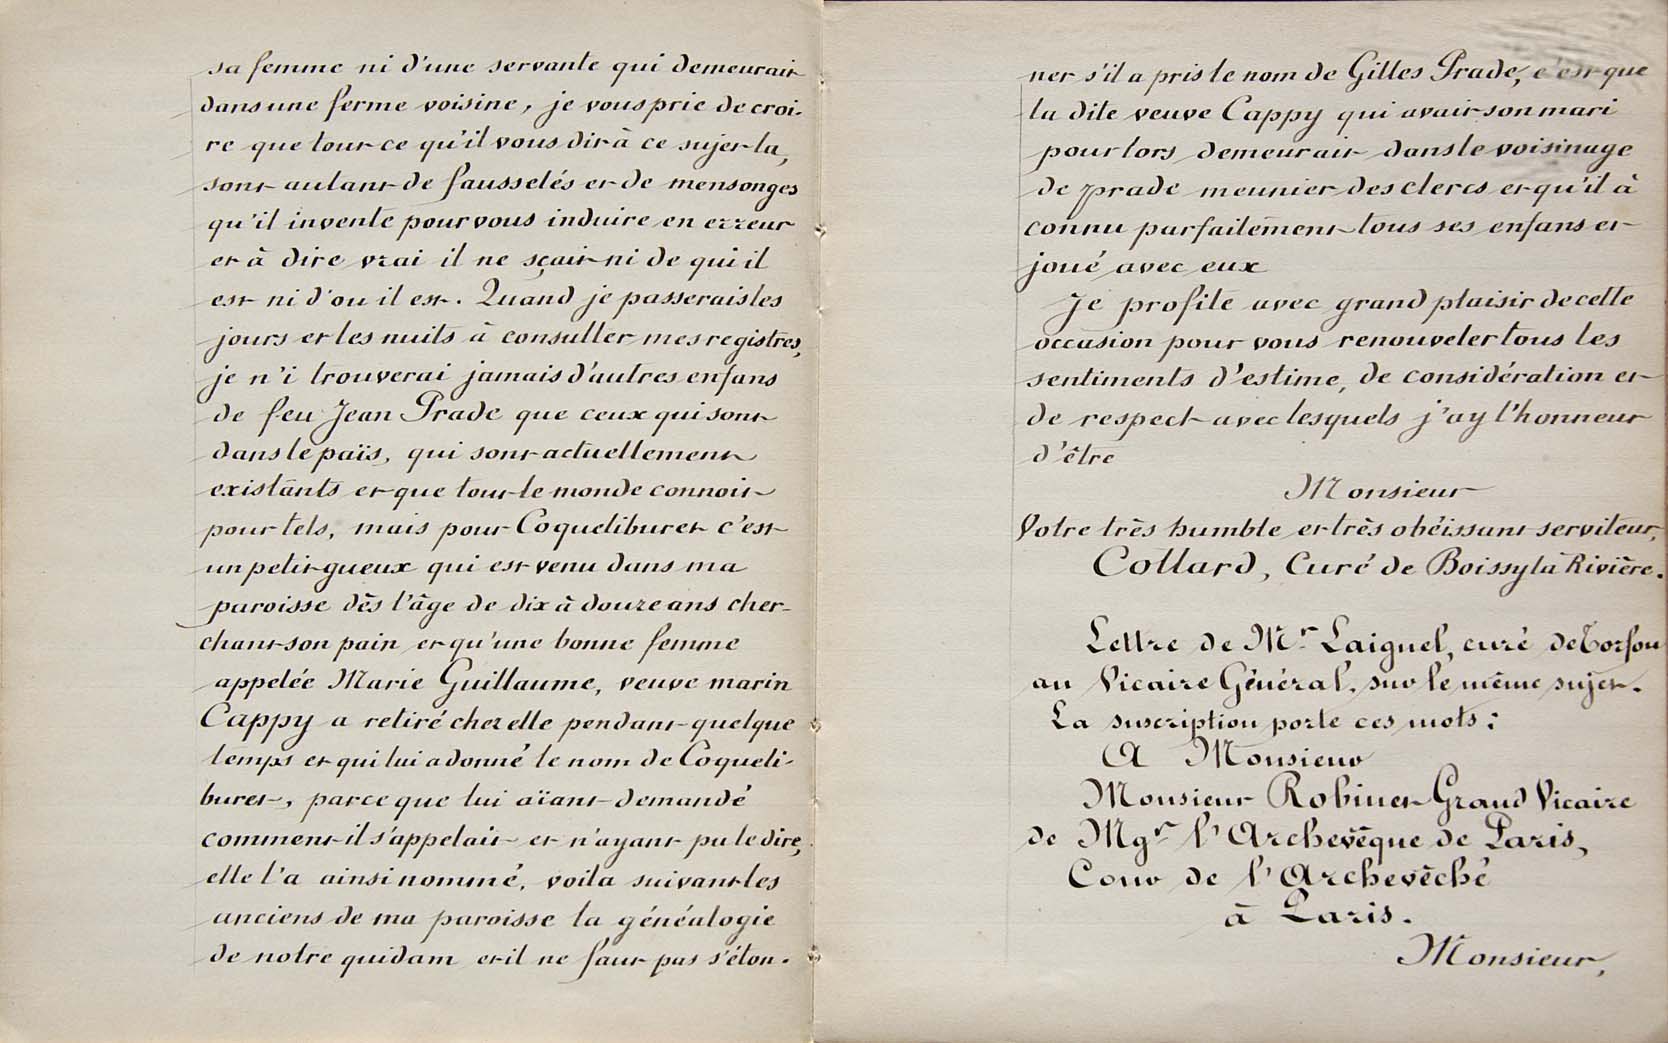 sa femme ni d'une servante qui demeurait
dans une ferme voisine, je vous prie de croi-
re que tout ce qu'il vous dir à ce sujet la,
sont autant de faussetés et de mensonges
qu'il invente pour vous induire en erreur
et à dire vrai il ne sçait ni de qui il
est ni d'ou il est. Quand je passerais les
jours et les nuits à consulter mes registres,
je n'i trouverai jamais d'autres enfans
de feu Jean Prade que ceux qui sont
dans le païs, qui sont actuellement
existants et que tout le monde connoit
pour tels, mais pour Coqueliburet c'est
un petit gueux qui est venu dans ma
paroisse dès l'âge de dix à douze ans cher-
chant son pain et qu'une bonne femme
appelée Marie Guillaume, veuve marin
Cappy a retiré chez elle pendant quelque
temps et qui lui a donné le nom de Coqueli-
buret, parce que lui aïant demandé
comment il s'appelait et n'ayant pu le dire,
elle l'a ainsi nommé, voila suivant les
anciens de ma paroisse la généalogie
de notre quidam et il ne faut pas s'éton-
ner s'il a pris le nom de Gilles Prade, c'est que
la dite veuve Cappy qui avait son mari
pour lors demeurait dans le voisinage
de prade meunier des clercs et qu'il à
connu parfaitement tous ses enfans et
joué avec eux
Je profite avec grand plaisir de cette
occasion pour vous renouveler tous les
sentiments d'estime, de considération et
de respect avec lesquels j'ay l'honneur
d'être
Monsieur
Votre très humble et très obéissant serviteur,
Collard, Curé de Boissy la Rivière.
Lettre de Mr Laignel, curé de Torfou
au Vicaire Général, sur le même sujet.
La suscription porte ces mots :
A Monsieur
Monsieur Robinet Grand Vicaire
de Mgr l'Archevêque de Paris,
Cour de l'Archevêché
à Paris.
Monsieur,